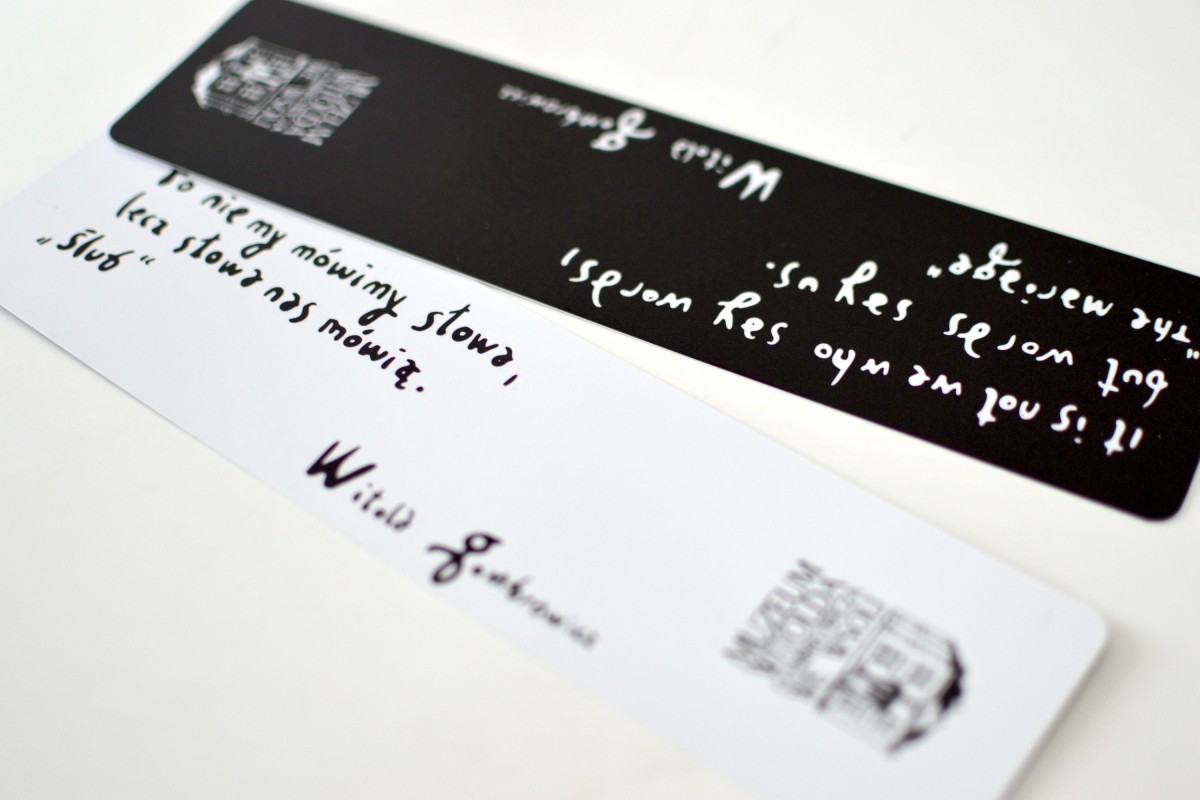 To nie my mówimy słowa,
lecz słowa nas mówią.
„Ślub“
Witold Gombrowicz
MUZEUM
WITOLDA
it is not we who say words,
but words say us.
"the mariage"
Witold Gombrowicz
MUZEUM
WITOLDA